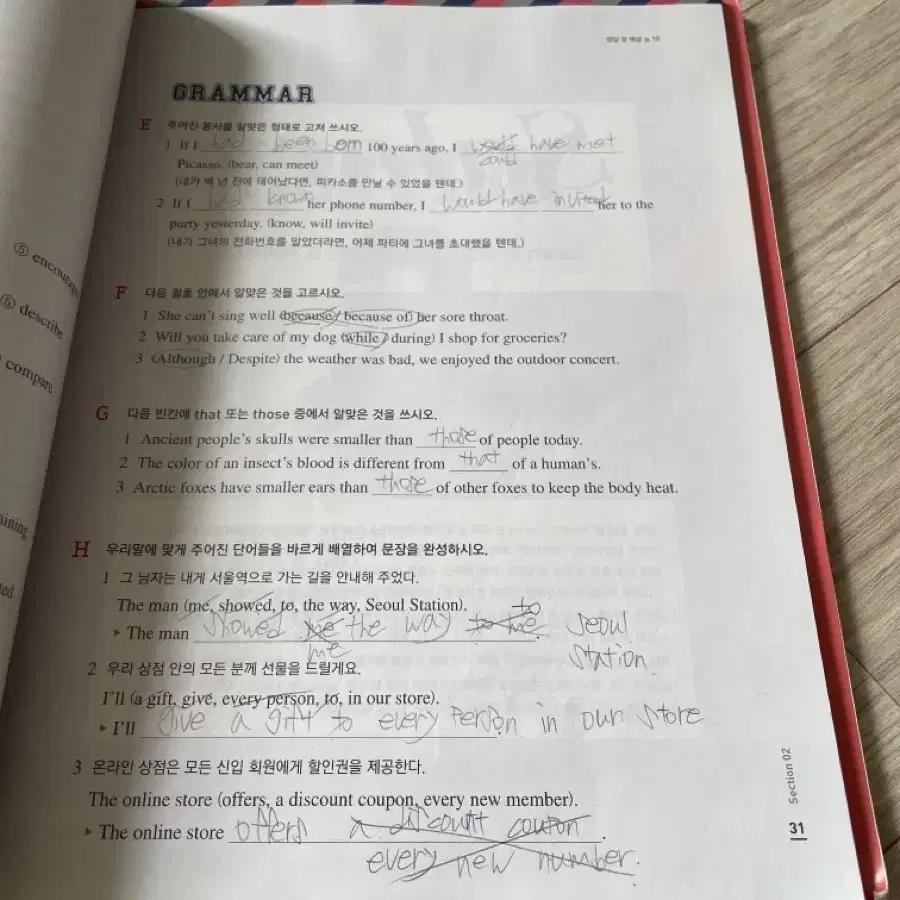 정답 및 해설 p. 15
GRAMMAR
E 주어진 동사를 알맞은 형태로 고쳐 쓰시오.
1 If I had been born 100 years ago, I would have met
could
Picasso. (bear, can meet)
(내가 백 년 전에 태어났다면, 피카소를 만날 수 있었을 텐데.)
2 If I had known her phone number, I would have invited her to the
party yesterday. (know, will invite)
(내가 그녀의 전화번호를 알았더라면, 어제 파티에 그녀를 초대했을 텐데.)
⑤ encourage
F 다음 괄호 안에서 알맞은 것을 고르시오.
1 She can't sing well (because / because of) her sore throat.
⑤ describe
2 Will you take care of my dog (while / during) I shop for groceries?
3 (Although / Despite) the weather was bad, we enjoyed the outdoor concert.
compare
G 다음 빈칸에 that 또는 those 중에서 알맞은 것을 쓰시오.
1 Ancient people's skulls were smaller than those of people today.
2 The color of an insect's blood is different from that of a human's.
3 Arctic foxes have smaller ears than those of other foxes to keep the body heat.
ining
H 우리말에 맞게 주어진 단어들을 바르게 배열하여 문장을 완성하시오.
1 그 남자는 내게 서울역으로 가는 길을 안내해 주었다.
ted
The man (me, showed, to, the way, Seoul Station).
▸ The man showed me the way to me to Seoul
me Station
2 우리 상점 안의 모든 분께 선물을 드릴게요.
I'll (a gift, give, every person, to, in our store).
▸ I'll give a gift to every person in our store.
3 온라인 상점은 모든 신입 회원에게 할인권을 제공한다.
The online store (offers, a discount coupon, every new member).
▸ The online store offers a discount coupon.
every new number.
Section 02
31